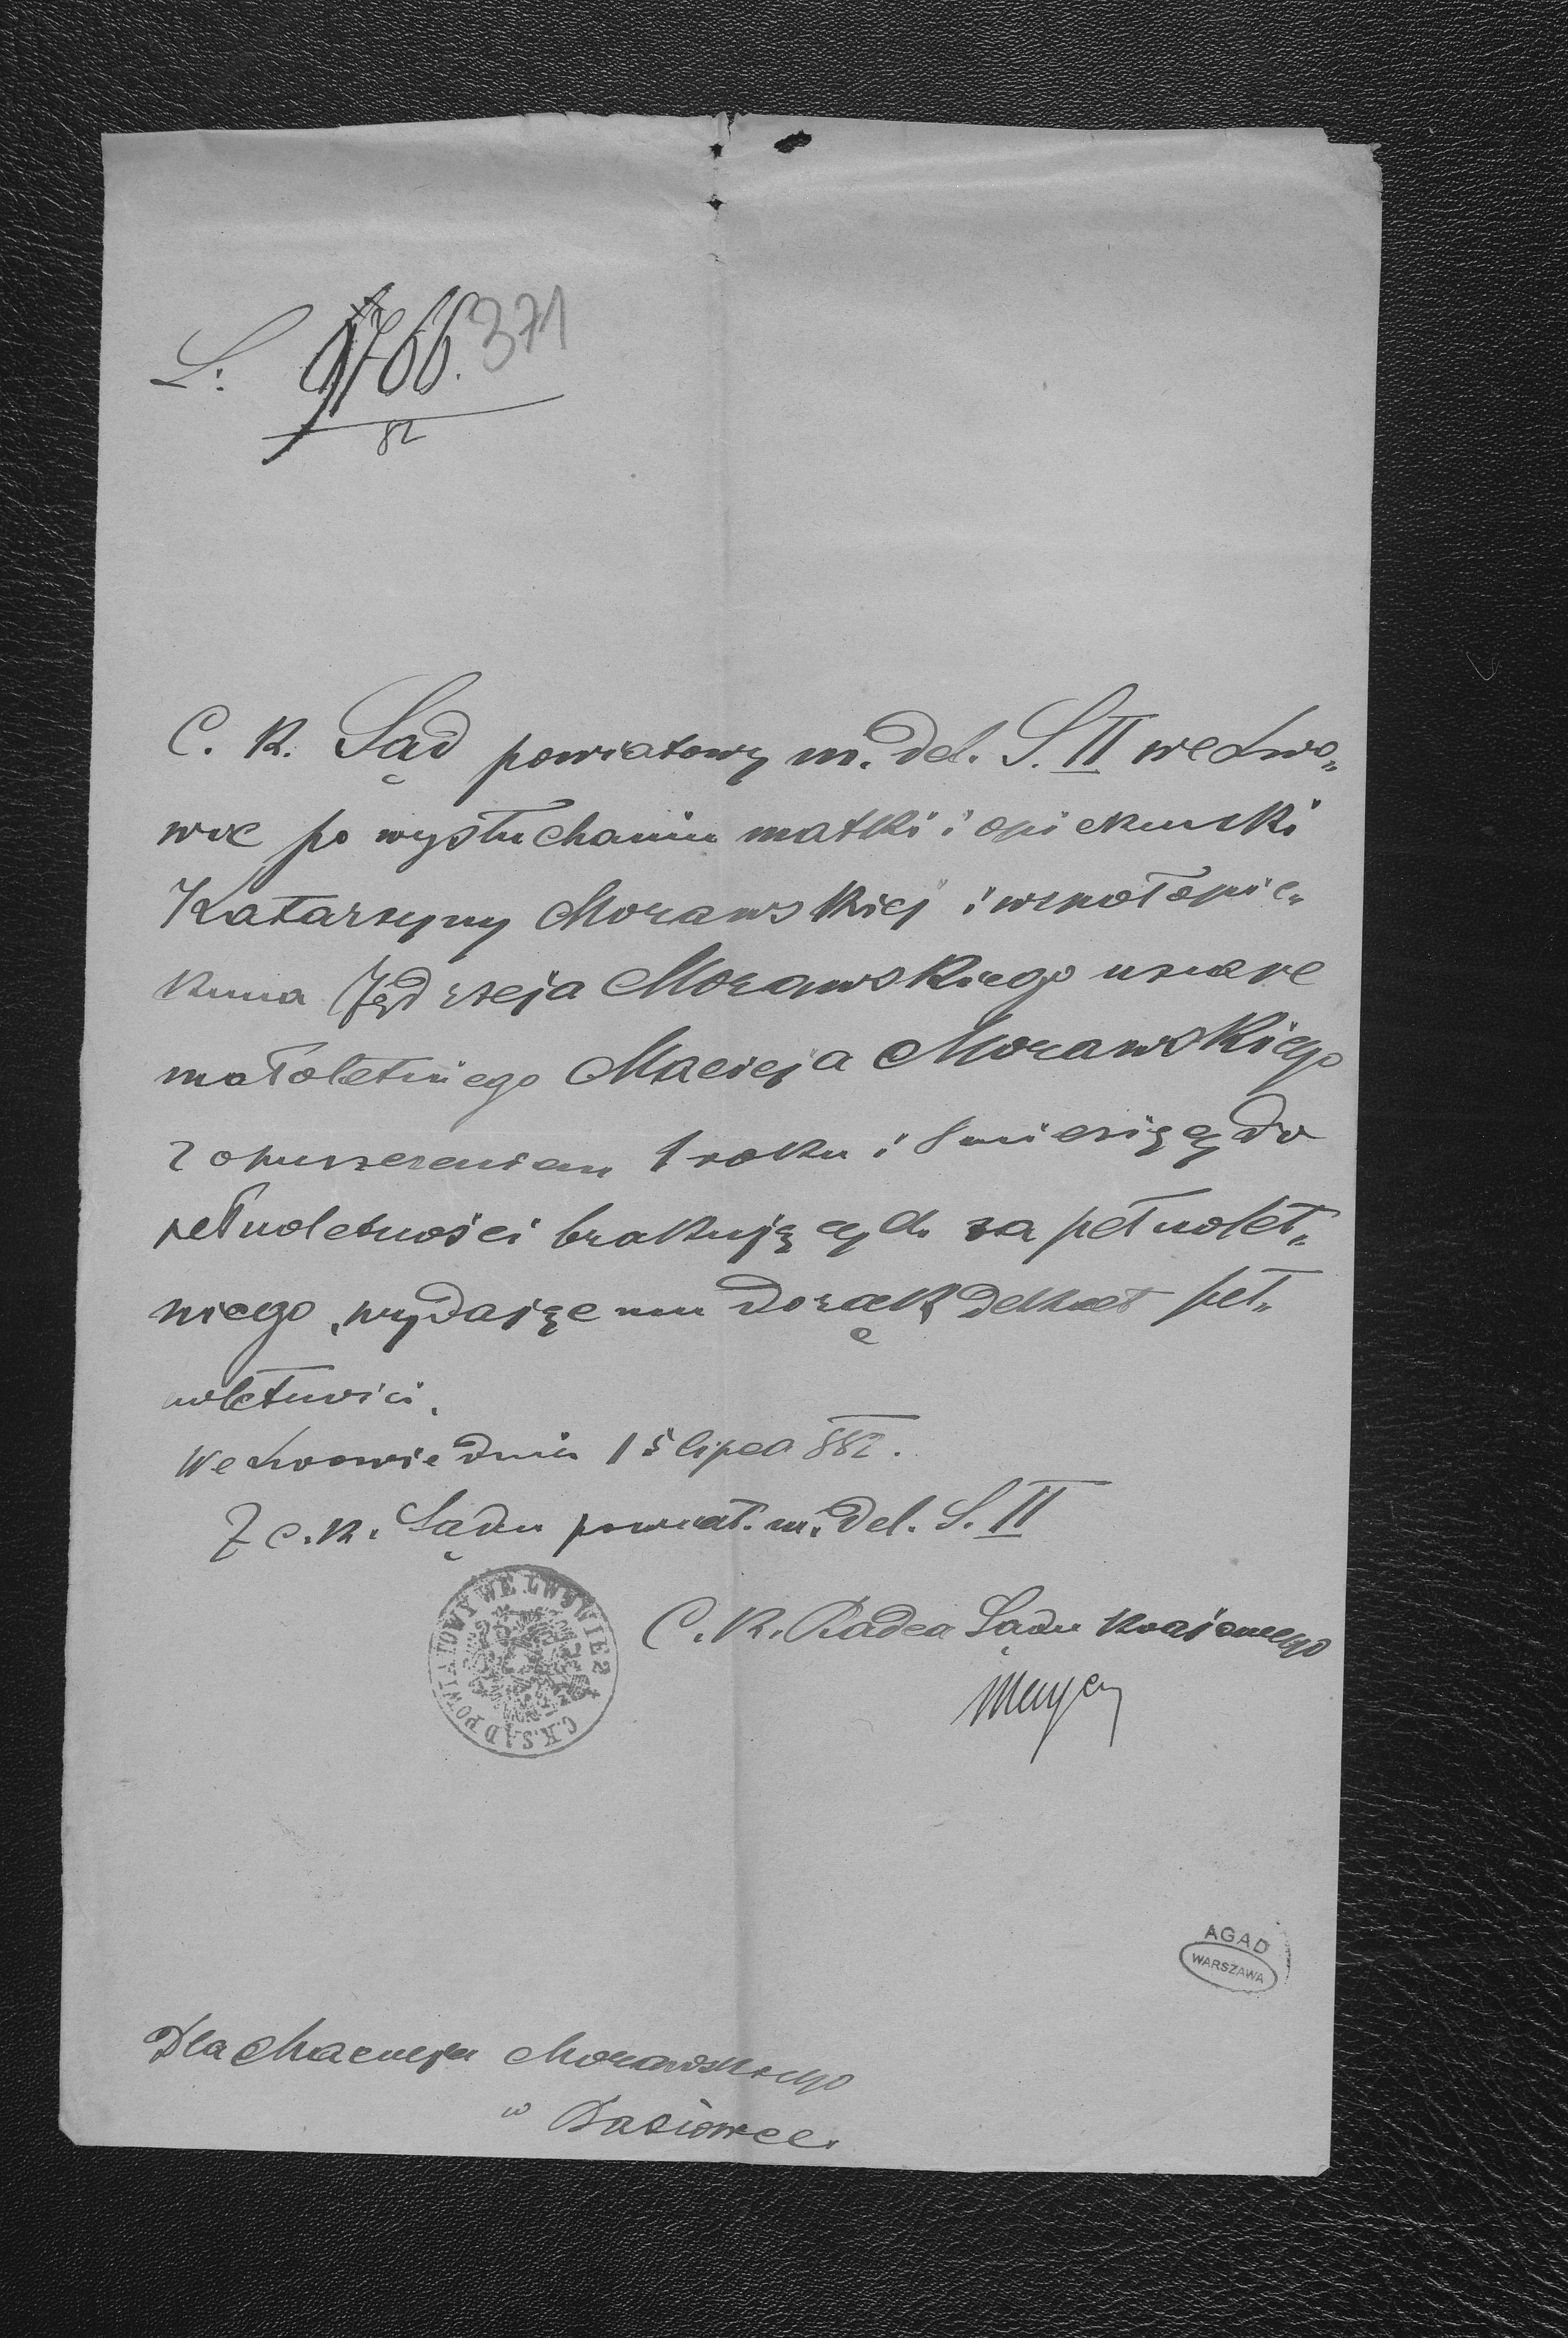 L: 9766. 371
82
C. K. Sąd powiatowy m. del. S. II we Lwo„
wie po wysłuchaniu matki i opiekunki
Katarzyny Morawskiej i współopie„
kuna Jędrzeja Morawskiego uznaje
małoletniego Macieja Morawskiego
z opuszczeniem 1 roku i 8 miesięcy do
pełnoletności brakujących za pełnolet„
niego, wydając mu do rąk dekret peł„
noletności.
We Lwowie dnia 15 lipca 882.
Z c. k. Sądu powiat. m. del. S. II
C. K. SĄD POWIATOWY WE LWOWIE 2
C. K. Radca Sądu krajowego
AGAD
WARSZAWA
Dla Macieja Morawskiego
w